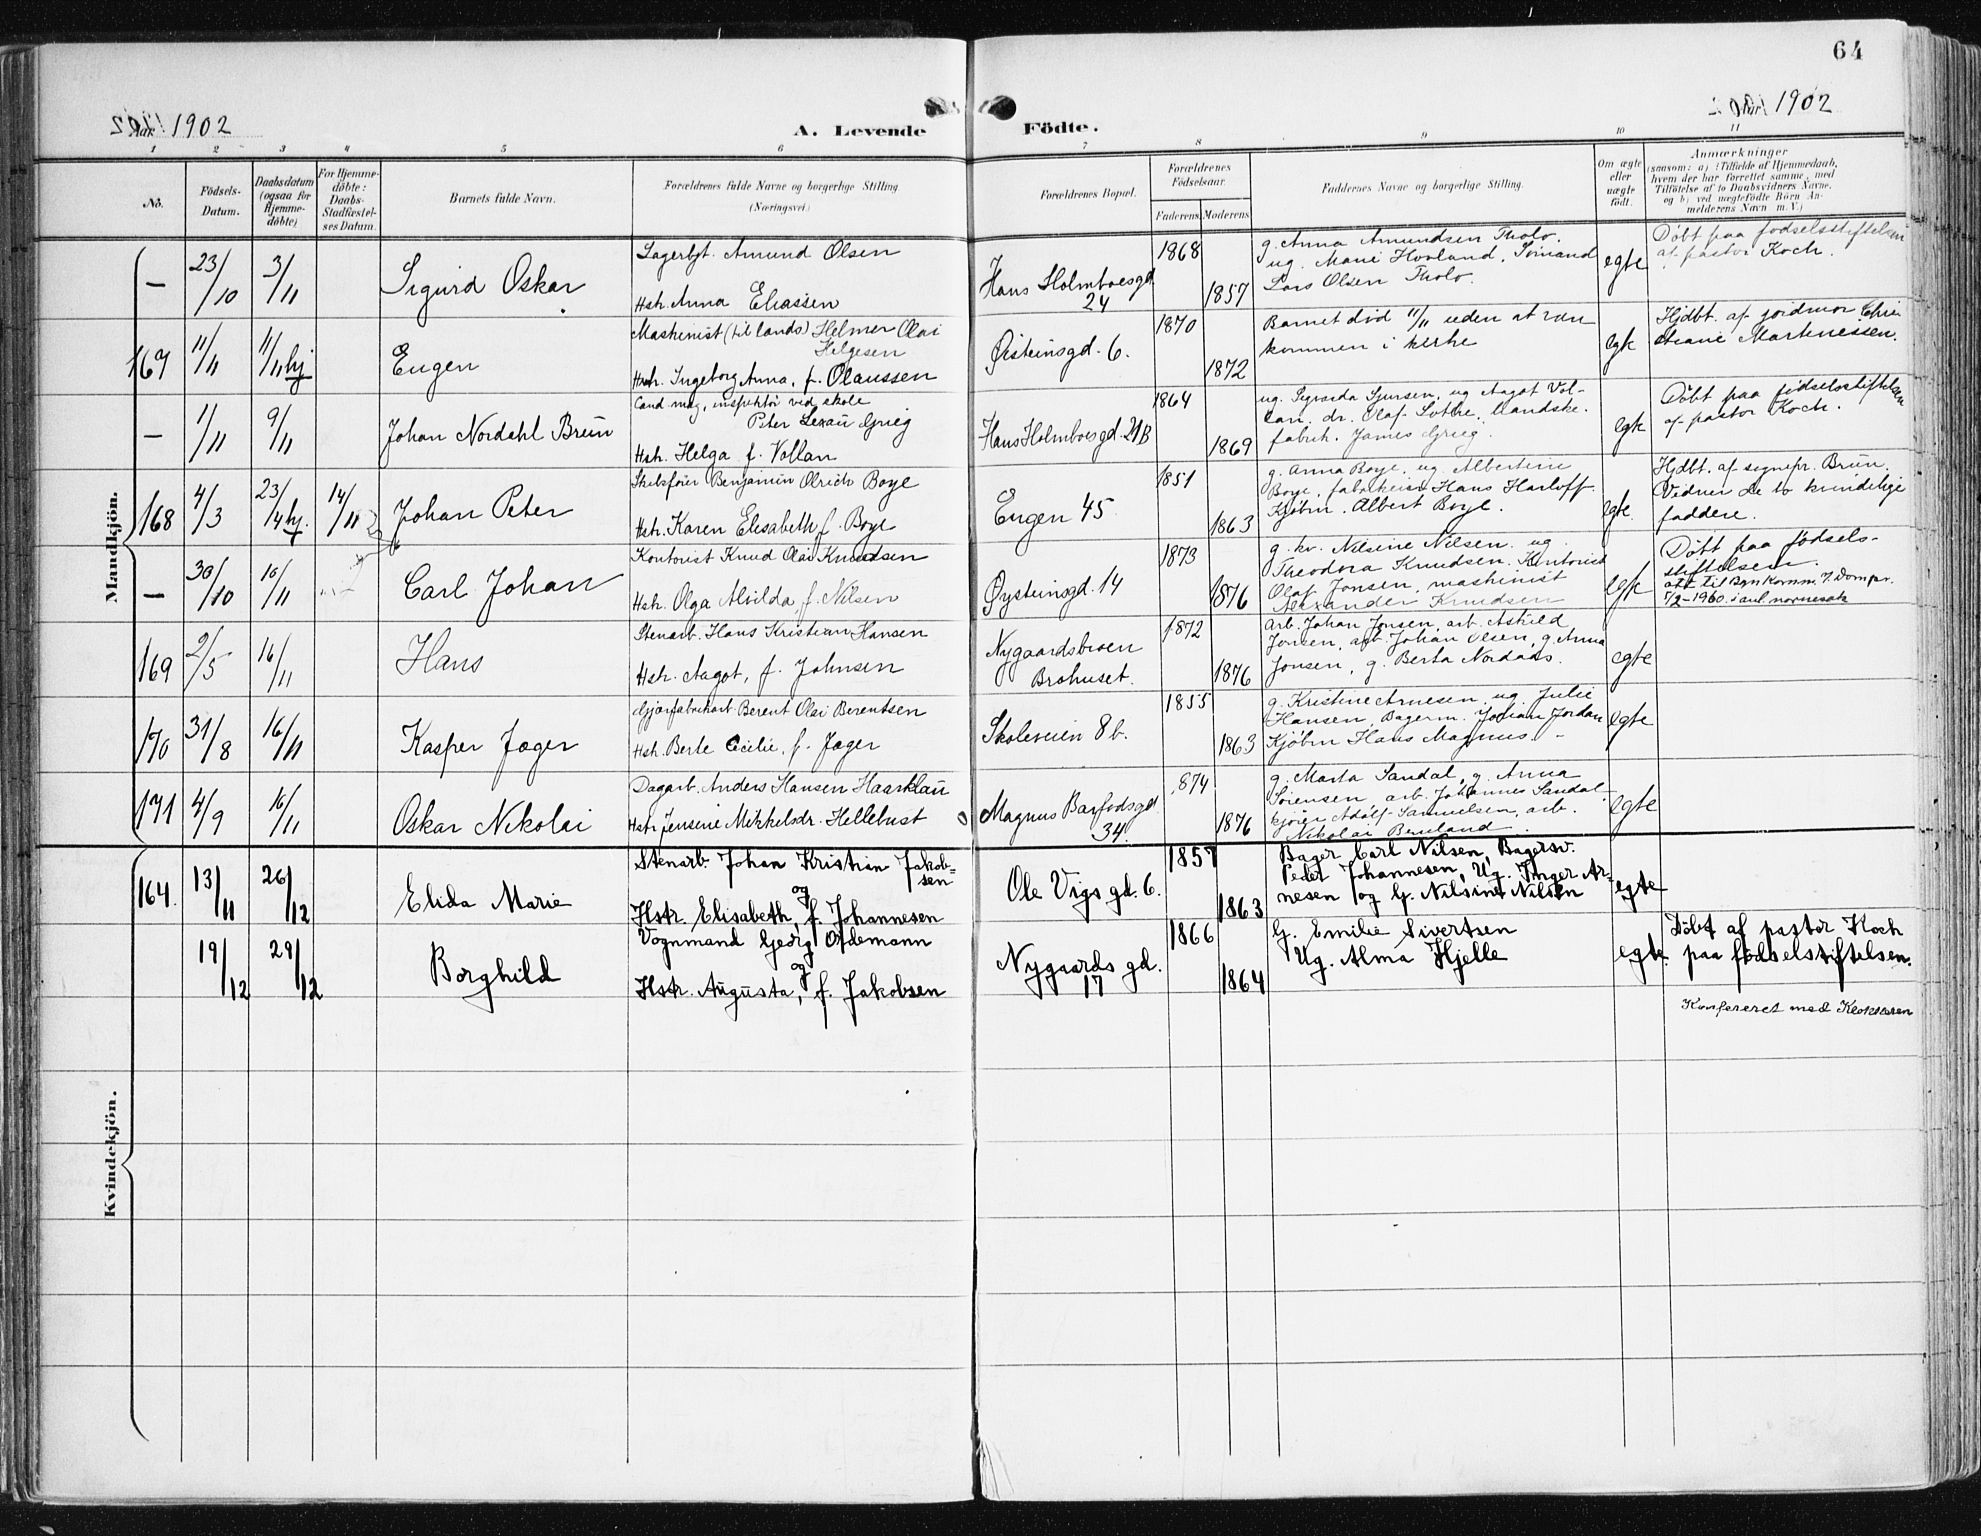 64
Aar 1902
A. Levende
Födte.
1902
1
2
3
4
5
6
7
8
9
10
11
No.
Födsels-
Datum.
Daabsdatum
(ogsaa for
Hjemme-
döbte)
For Hjemme-
döbte:
Daabs-
Stadfæstel-
ses Datum.
Barnets fulde Navn.
Forældrenes fulde Navne og borgerlige Stilling.
(Næringsvei.)
Forældrenes Bopæl.
Forældrenes
Födselsaar.
Faderens
Moderens
Faddernes Navne og borgerlige Stilling.
Om ægte
eller
uægte
födt.
Anmærkninger
(saasom: a) i Tilfælde af Hjemmedaab,
hvem der har forrettet samme, med
Tilföielse af to Daabsvidners Navne,
og b) ved uægtefödte Börn An-
melderens Navn m. V.)
Mandkjön.
—
23/10
3/11
Sigurd Oskar
Lagerbjt. Amund Olsen
Hstr. Anna Eliassen
Hans Holmboesgd
24
1868
1857
g. Anna Amundsen Tholo.
ug. Marie Hovland, Sömand
Lars Olsen Tholo.
egte
Döbt paa födselsstiftelsen
af pastor Koch.
167
11/11
11/11 hj
Eugen
Maskinist (til lands) Helmer Olai
Helgesen
Hstr. Ingeborg Anna, f. Olaussen
Øisteinsgd. 6.
1870
1872
Barnet död 11/11 uden at være
kommen i kirke
egte
Hjdbt. af jordmor Chri-
stiane Martinessen.
—
1/11
9/11
Johan Nordahl Brun
Cand. mag, inspektör ved skole
Peter Lexau Grieg
Hstr. Helga f. Vollan
Hans Holmboesgd. 21B
1864
1869
ug. Sigvarda Sjursen, ug Aagot Vol-
lan, dr. Olaf Sothe, Handske-
fabrik. James Grieg.
egte
Döbt paa födselsstiftelsen
af pastor Koch.
168
4/3
23/4 hj.
14/11
Johan Peter
Skibsförer Benjamin Olrich Boye
Hstr. Karen Elisabeth f. Boye
Engen 45
1851
1863
g. Anna Boye, ug. Albertine
Boye, fabrikeier Hans Harloff
Kjöbm. Albert Boye.
egte.
Hjdbt. af sognepr. Brun.
Vidner de to kvindelige
faddere.
—
30/10
16/11
Carl Johan
Kontorist Knud Olai Knudsen
Hstr. Olga Alvilda f. Nilsen
Øysteinsgd. 14
1873
1876
g. kv. Nilsine Nilsen. ug.
Theodora Knudsen. Kontorist
Olaf Jonsen, maskinist
Alexander Knudsen
egte
Döbt paa födsels-
stiftelsen.
att til Bgn Komm. 7. Dompr.
5/2-1960.
169
2/5
16/11
Hans
Stenarb. Hans Kristian Hansen
Hstr. Aagot, f. Johnsen
Nygaardsbroen
Brohuset.
1872
1876
arb. Johan Jonsen, arb. Askild
Jonsen, arb. Johan Olsen, g. Anna
Jonsen, g. Berta Nordaas.
egte
170
31/8
16/11
Kasper Jæger
Gjærfabrikarb. Berent Olai Berentsen
Hstr. Berte Cecilie, f. Jæger
Skoleveien 8b.
1855
1863
g. Kristine Arnesen, ug. Julie
Hansen, Bagerm. Johan Jordan
Kjöbm Hans Magnus.
egte
171
4/9
16/11
Oskar Nikolai
Dagarb. Anders Hansen Haarklau
Hstr. Jensine Mikkelsdr. Hellebust
Magnus Barfodsgd
34.
1874
1876
g. Marta Sandal, g. Anna
Sörensen, arb. Johannes Sandal
kjører Adolf Samuelsen, arb.
Nikolai Berland.
egte
Kvindekjön.
164.
13/11
26/12
Elida Marie
Stenarb. Johan Kristian Jakob-
sen
og
Hstr. Elisabeth, f. Johannesen
Ole Vigs gd. 6.
1857
1863
Bager Carl Nilsen, Bagersv.
Peder Johannesen, Ug. Inger Ar-
nesen og G. Nilsine Nilsen
egte
19/12
29/12
Borghild
Vognmand Georg Ordemann
og
Hstr. Augusta, f. Jakobsen
Nygaards gd.
17
1866
1864
G. Emilie Sivertsen
Ug. Alma Hjelle
egte.
Döbt af pastor Koch
paa födselstiftelsen.
Konfereret med Klokkeren